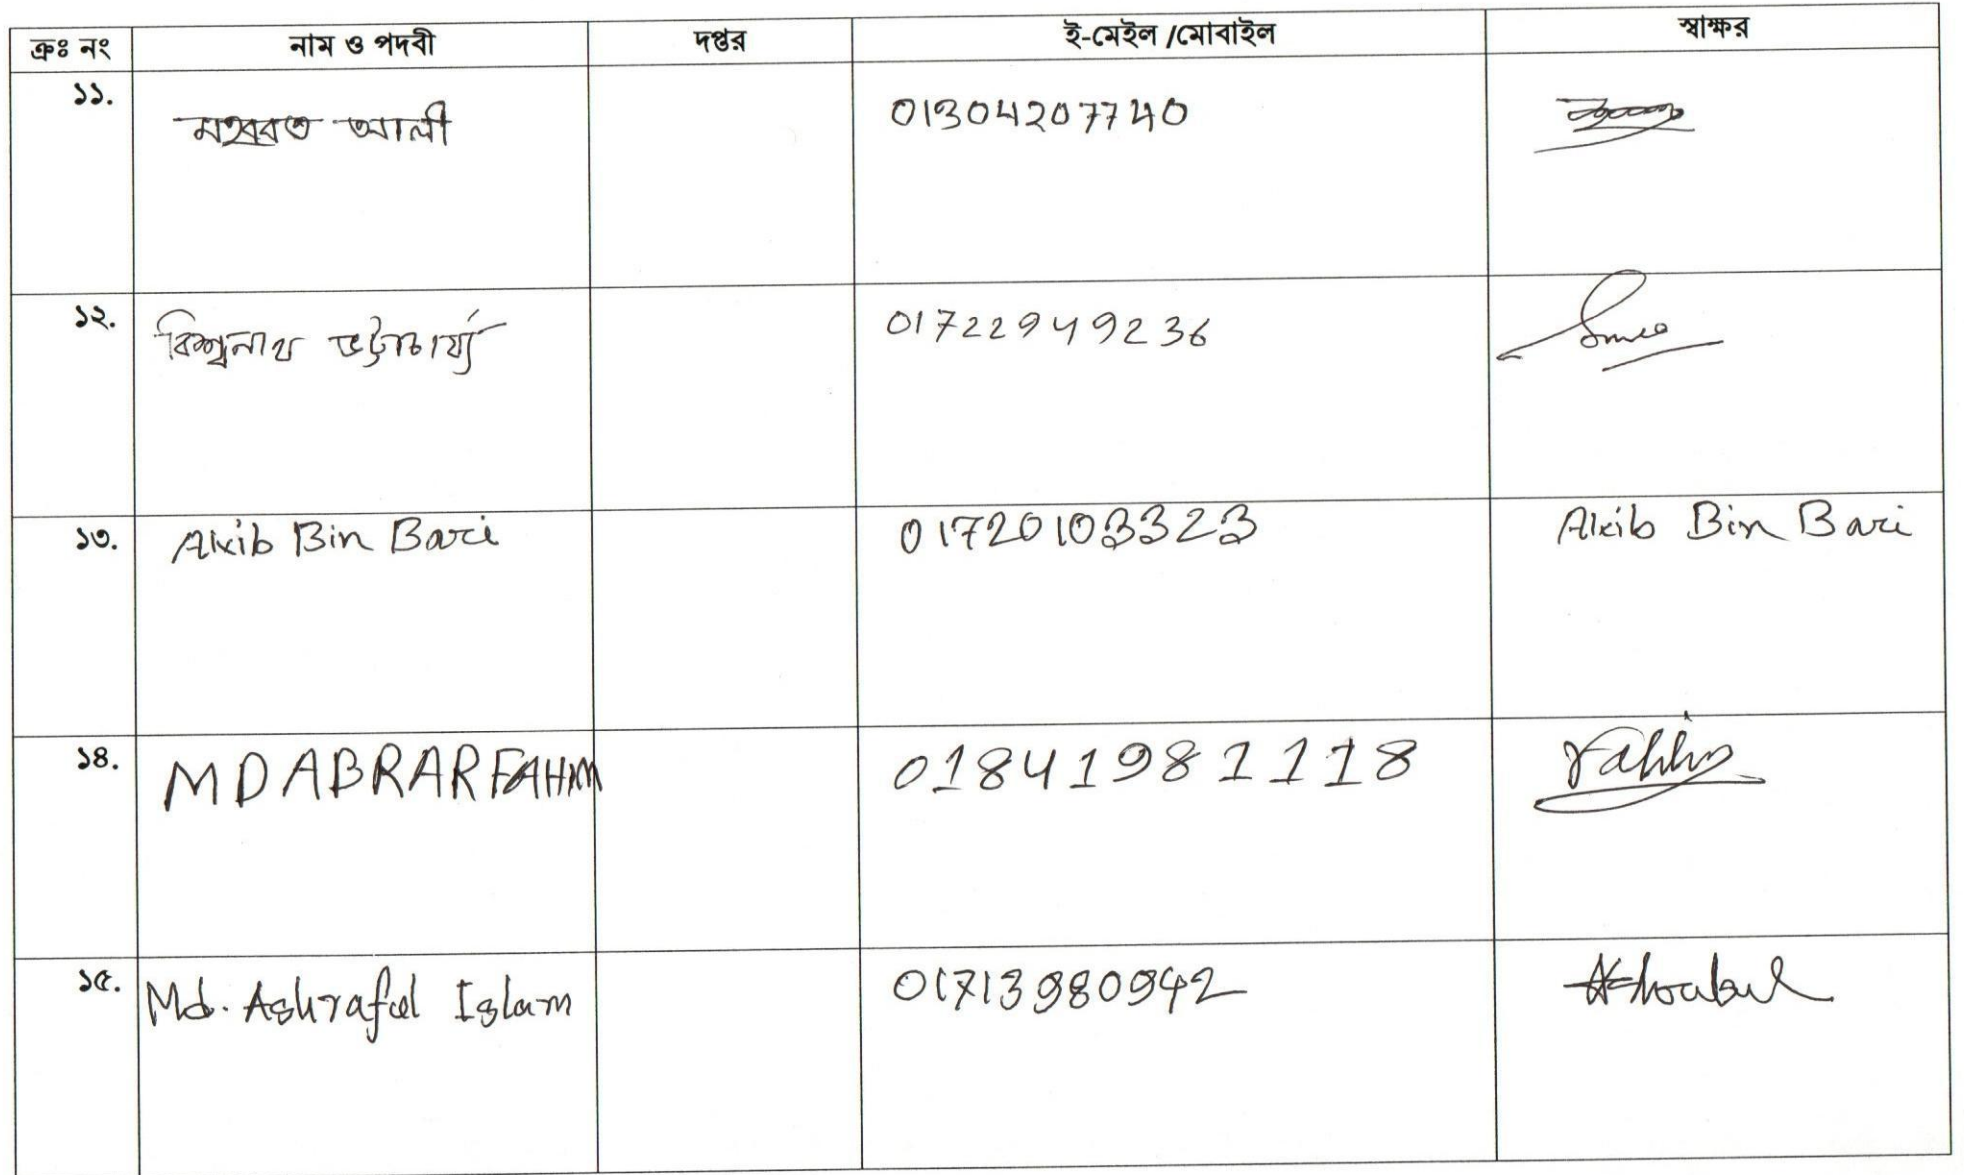 ক্রঃ নং নাম ও পদবী দপ্তর ই-মেইল /মোবাইল স্বাক্ষর
১১. মহব্বত আলী 01304207740
১২. বিশ্বনাথ ভট্টাচার্য্য 01722949236
১৩. Akib Bin Bari 01720103323 Akib Bin Bari
১৪. MD ABRAR FAHIM 01841981118
১৫. Md. Ashraful Islam 01713980942